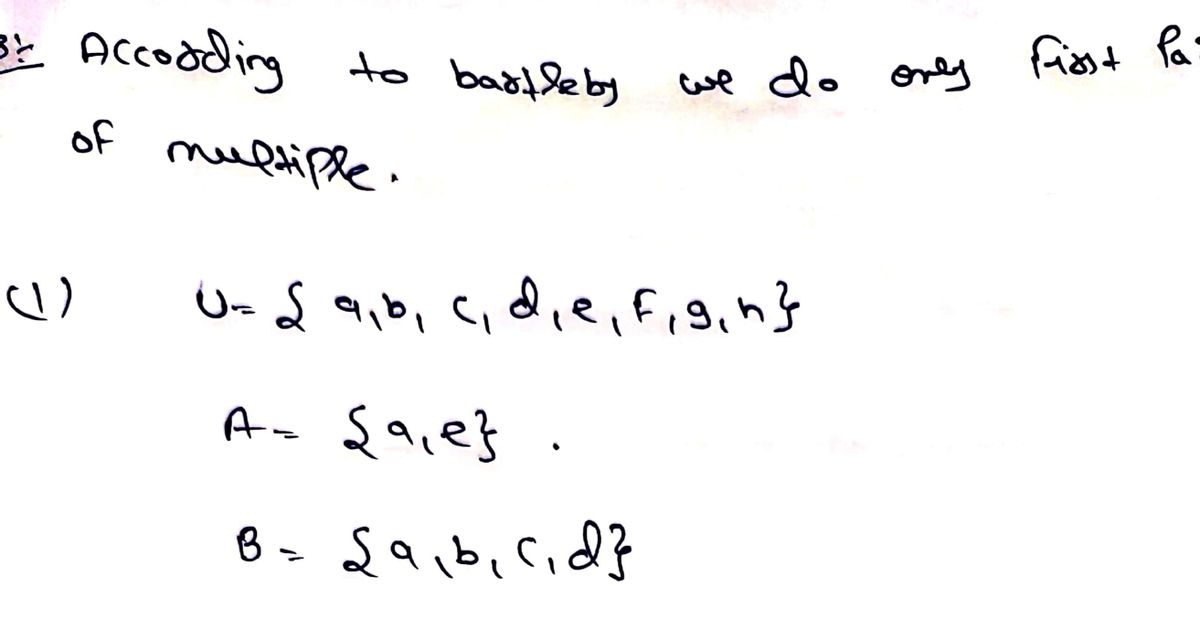 According to bartleby we do only first Pa
of multiple.
(1) U = { a, b, c, d, e, f, g, h }
A = { a, e } .
B = { a, b, c, d }